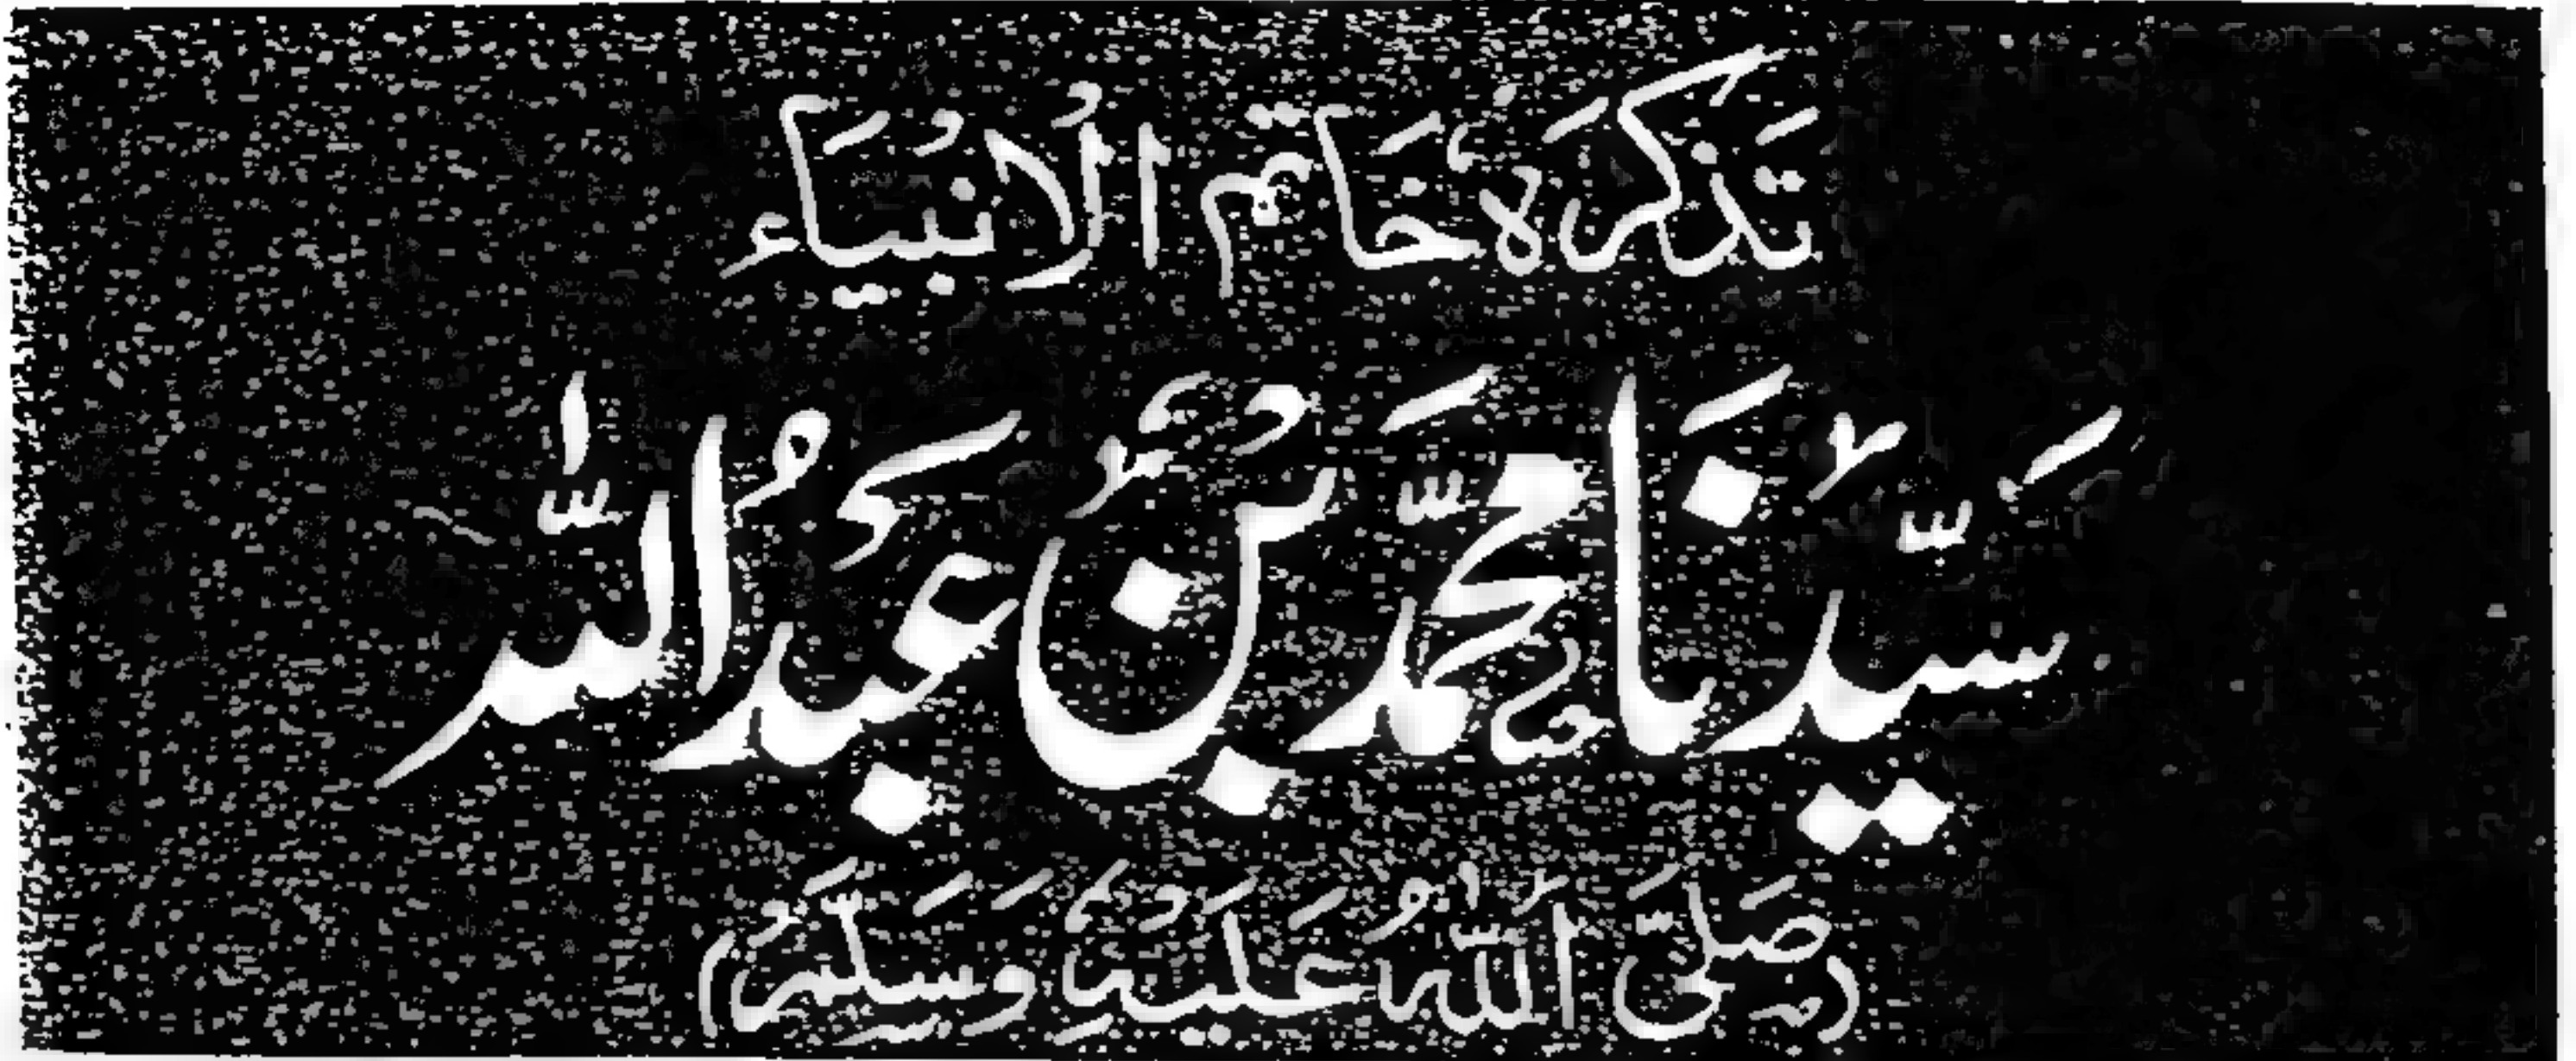 تَذکرَہٴ خَاتم الاُنبیَاء
سَیّدنَا محَمّد بُن عَبدُ اللّٰہ
(صَلیَّ اللّٰہُ عَلَیُہِ وَسَلَّمُ)